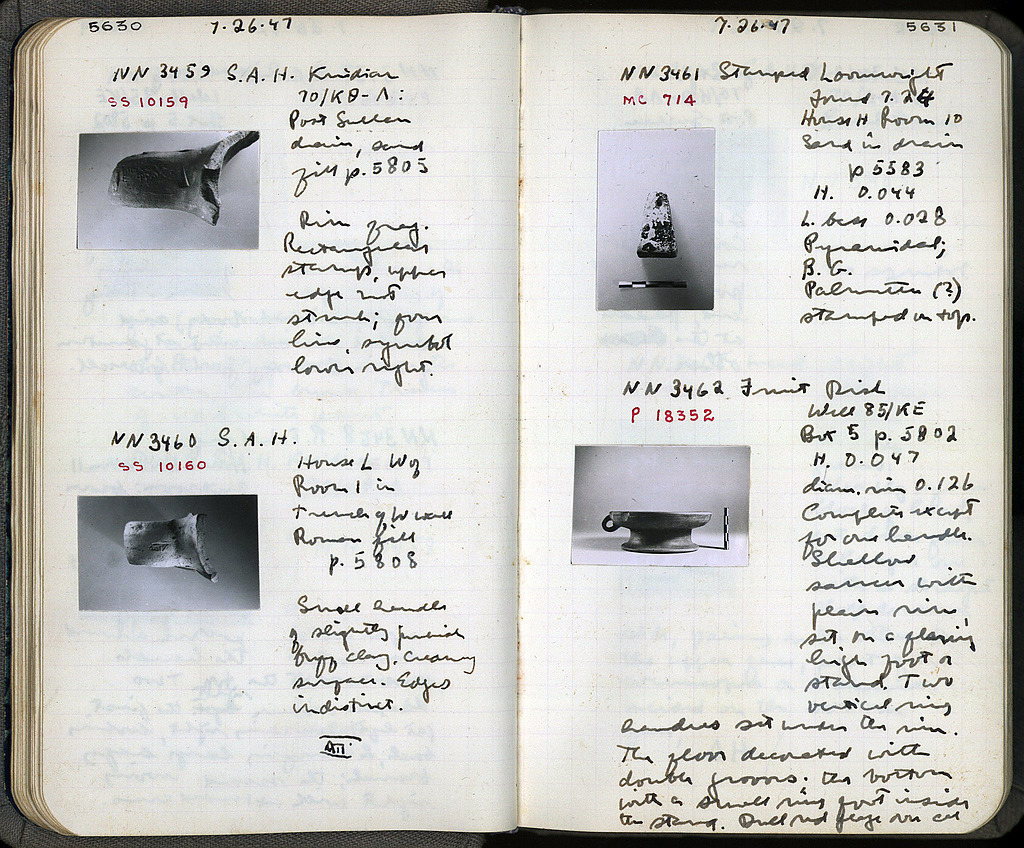 5630 7.26.47
NN 3459 S.A.H. Knidian
SS 10159
70/KΘ-Λ:
Post Sullan
drain, sand
fill p. 5805
Rim gray.
Rectangular
stamp, upper
edge not
struck; four
lines, symbol
lower right.
NN 3460 S.A.H.
SS 10160
House L Wg
Room 1 in
trench of W wall
Roman fill
p. 5808
Small handle
of slightly pinkish
buff clay. Creamy
surface. Edges
indistinct.
7.26.47 5631
NN 3461 Stamped Loomweight
MC 714
Found 7.24
House H Room 10
Sand in drain
p 5583
H. 0.044
L. base 0.028
Pyramidal;
B.G.
Palmette (?)
stamped on top.
NN 3462 Fruit Dish
P 18352
Well 85/KE
Box 5 p. 5802
H. 0.047
diam. rim 0.126
Complete except
for one handle.
Shallow
saucer with
plain rim,
set on a flaring
high foot or
stand. Two
vertical ring
handles set under the rim.
The floor decorated with
double grooves. the bottom
with a small ring foot inside
the stand. Dull red glaze over all